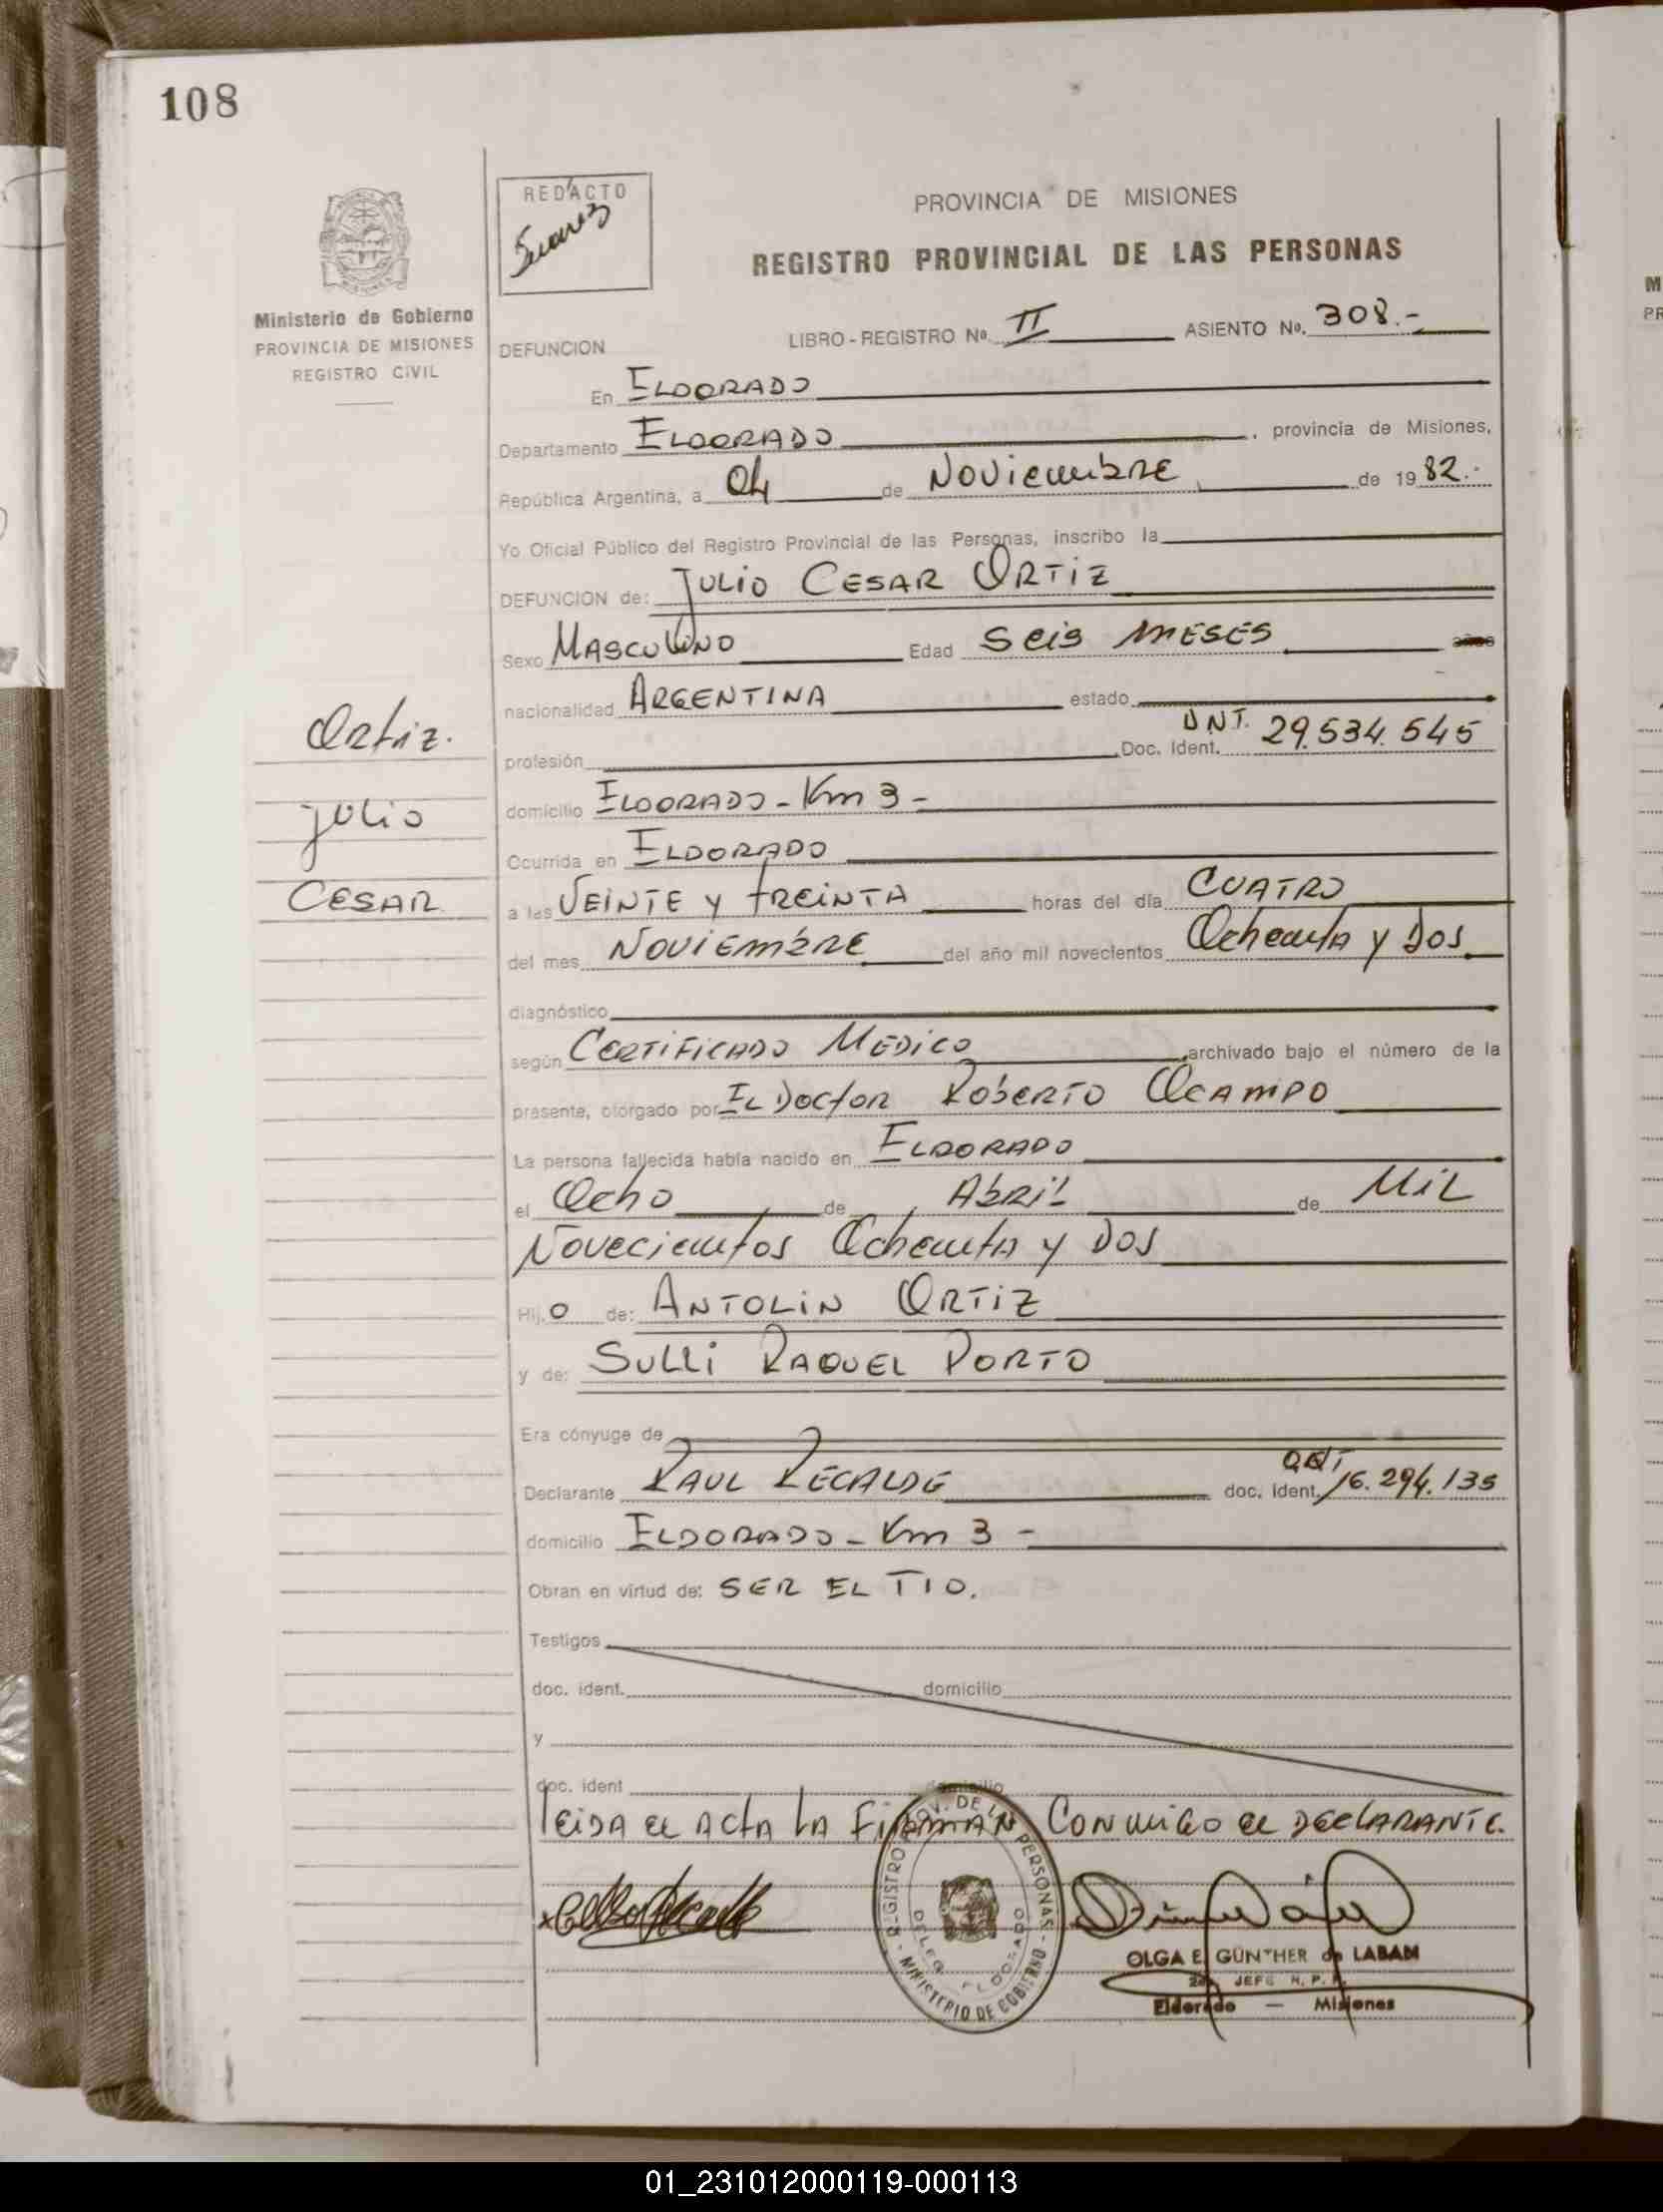 108
REDACTO
Suarez
PROVINCIA DE MISIONES
REGISTRO PROVINCIAL DE LAS PERSONAS
Ministerio de Gobierno
PROVINCIA DE MISIONES
REGISTRO CIVIL
LIBRO - REGISTRO No. II ASIENTO No. 308.-
DEFUNCION
En ELDORADO
Departamento ELDORADO, provincia de Misiones,
República Argentina, a 04 de Noviembre de 1982.-
Yo Oficial Público del Registro Provincial de las Personas, inscribo la
DEFUNCION de: JULIO CESAR ORTIZ
Sexo MASCULINO Edad SEIS MESES
nacionalidad ARGENTINA estado
Ortiz.
profesión Doc. Ident. DNI. 29.534.545
Julio
domicilio ELDORADO - Km 3 -
Ocurrida en ELDORADO
CESAR
a las VEINTE y TREINTA horas del día CUATRO
del mes NOVIEMBRE del año mil novecientos Ochenta y Dos
diagnóstico
según CERTIFICADO MEDICO archivado bajo el número de la
presente, otorgado por EL Doctor ROBERTO OCAMPO
La persona fallecida había nacido en ELDORADO
el Ocho de ABRIL de MIL
Novecientos Ochenta y Dos
Hijo de: ANTOLIN ORTIZ
y de: SULLI RAQUEL PORTO
Era cónyuge de
Declarante RAUL RECALDE doc. Ident. 16.294.135
domicilio ELDORADO - Km 3 -
Obran en virtud de: SER EL TIO.
Testigos
doc. ident. domicilio
y
doc. ident domicilio
leida el ACTA LA FIRMAN CONMIGO el DECLARANTE.
REGISTRO PROV. DE LAS PERSONAS - MINISTERIO DE GOBIERNO -
DELEG. ELDORADO
OLGA E. GUNTHER de LABAM
JEFE R. P. P.
Eldorado — Misiones
01_231012000119-000113